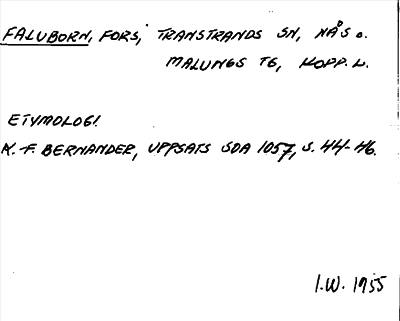 FALUBORN, FORS, TRANSTRANDS SN, NÅS o.
MALUNGS TG, KOPP. L.
ETYMOLOGI.
K.-F. BERNANDER, UPPSATS SOA 1057, S. 44-46.
I.W. 1955